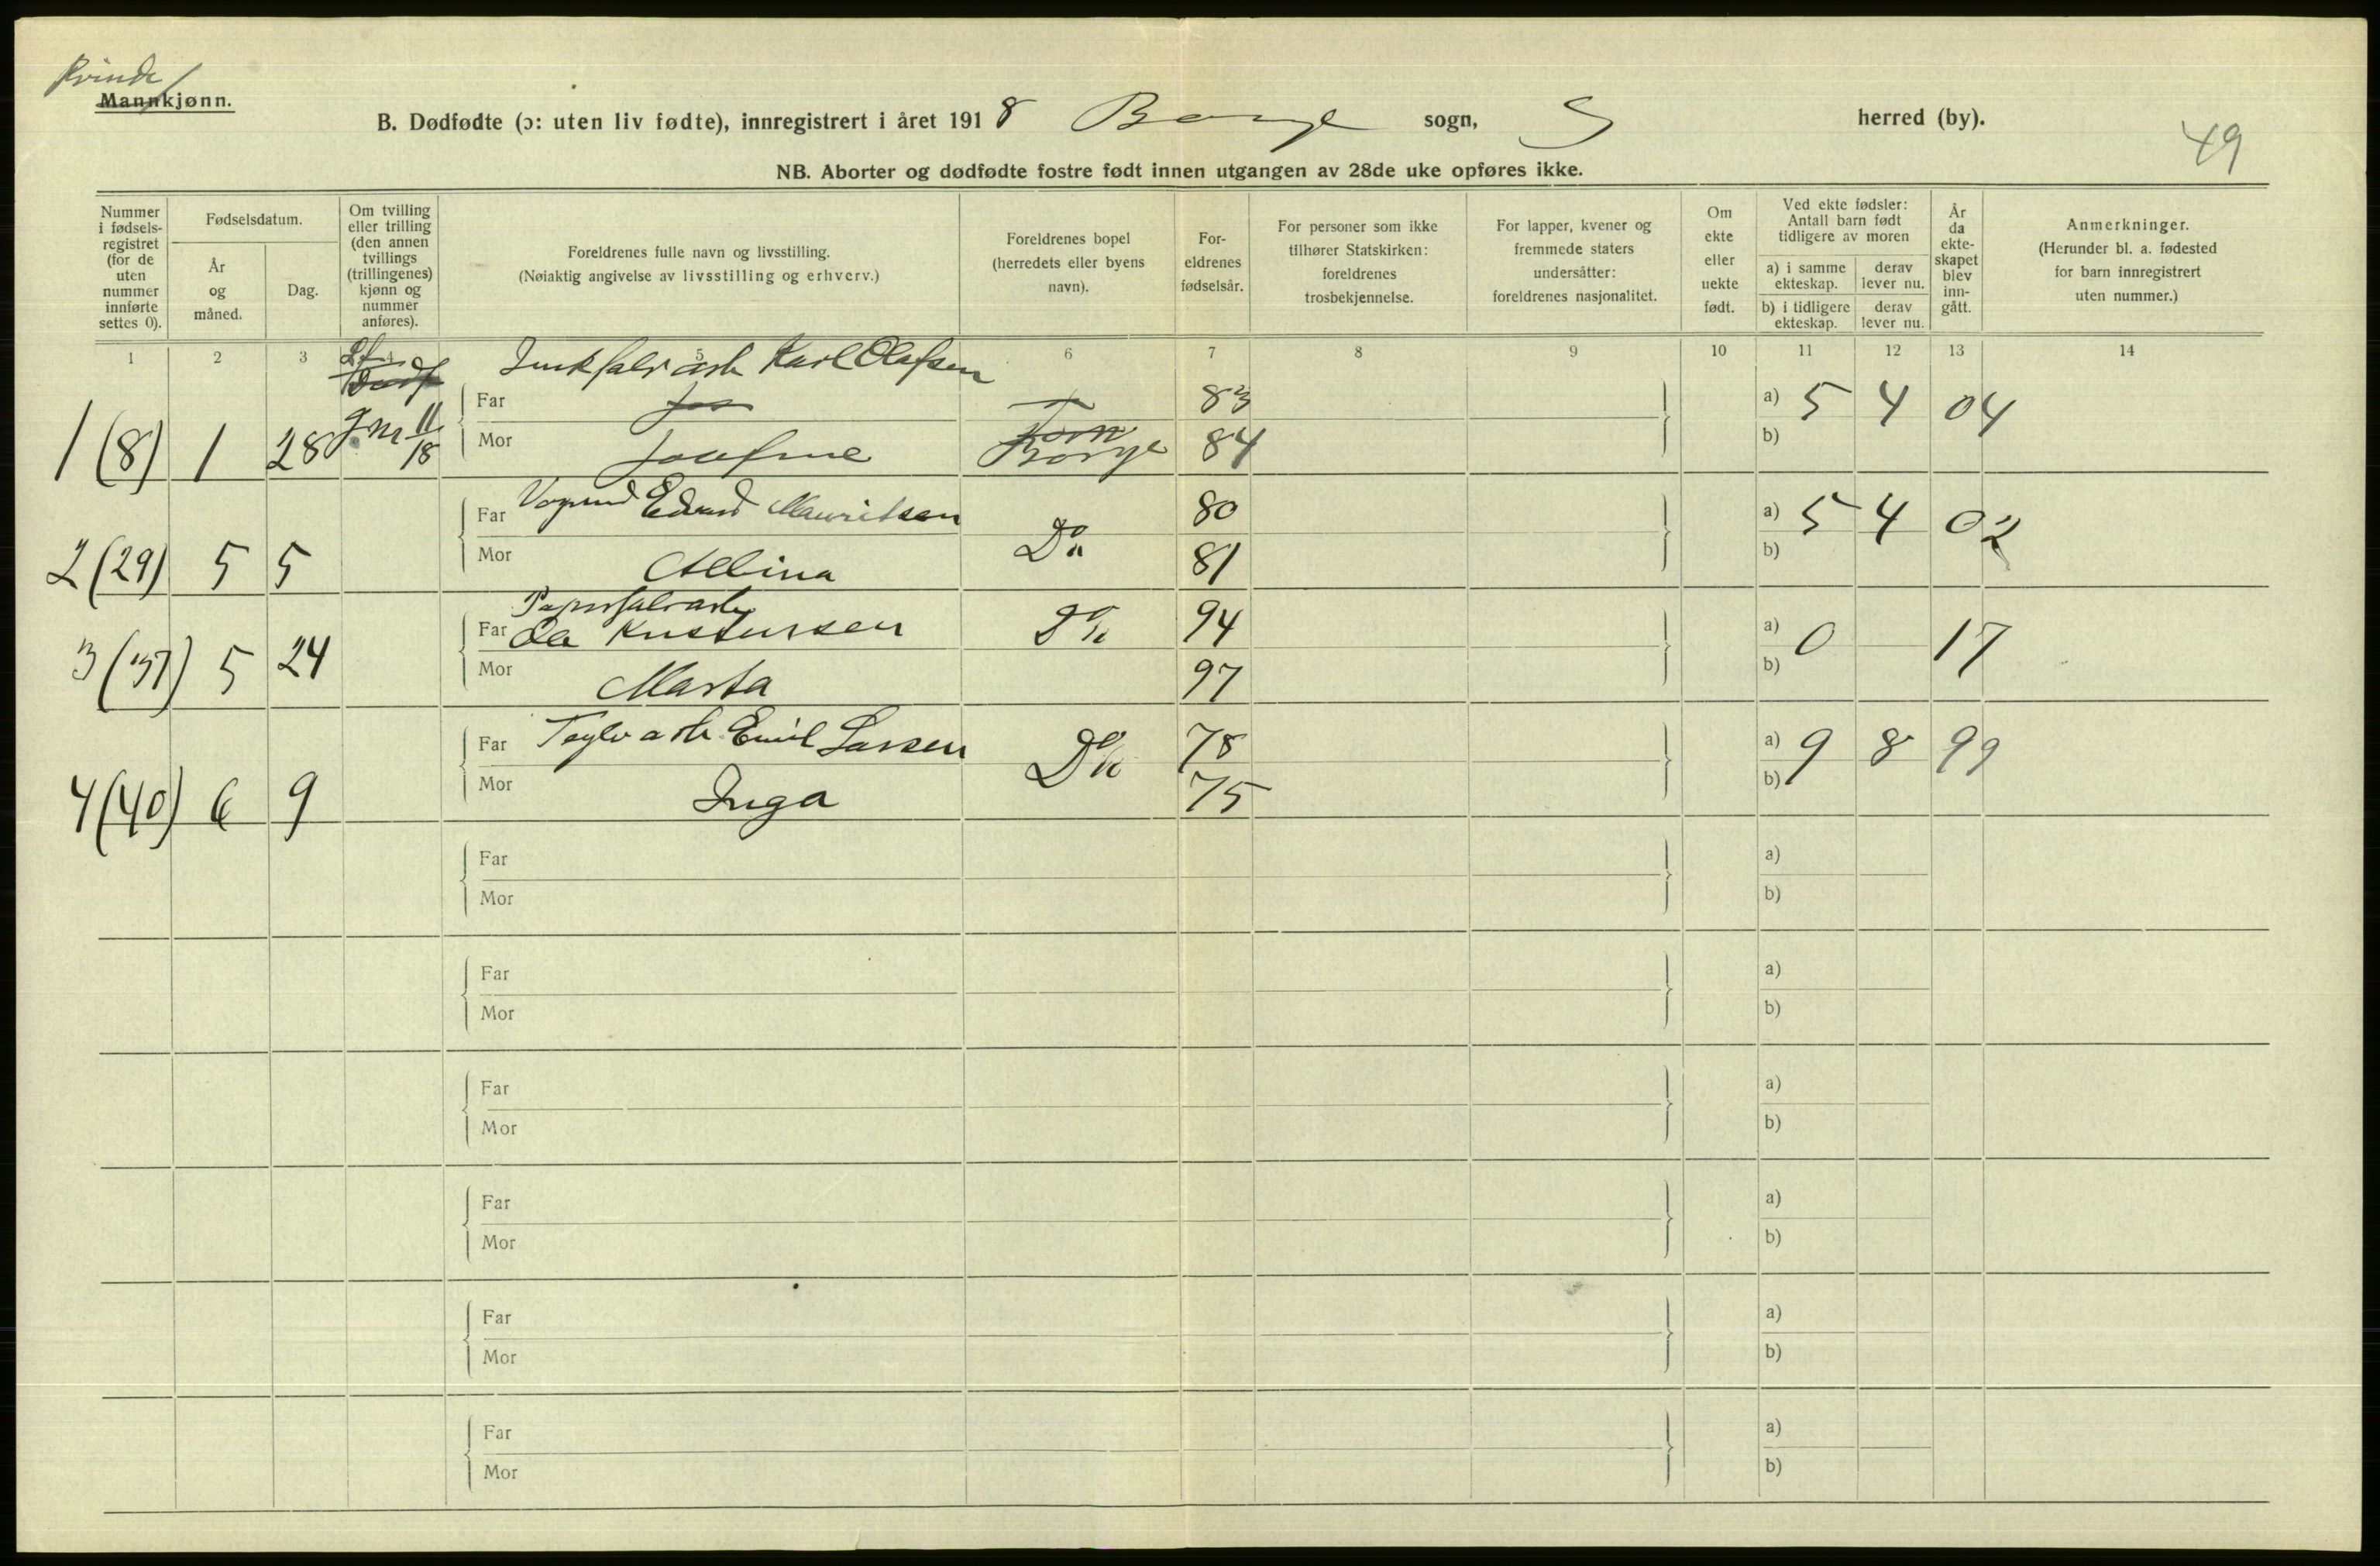 Kvinde
Mannkjønn.
B. Dødfødte (ɔ: uten liv fødte), innregistrert i året 1918 Borge sogn, S herred (by).
49
NB. Aborter og dødfødte fostre født innen utgangen av 28de uke opføres ikke.
Nummer i fødsels-registret (for de uten nummer innførte settes 0).
Fødselsdatum.
År og måned.
Dag.
Om tvilling eller trilling (den annen tvillings (trillingenes) kjønn og nummer anføres).
Foreldrenes fulle navn og livsstilling.
(Nøiaktig angivelse av livsstilling og erhverv.)
Foreldrenes bopel (herredets eller byens navn).
For-eldrenes fødselsår.
For personer som ikke tilhører Statskirken: foreldrenes trosbekjennelse.
For lapper, kvener og fremmede staters undersåtter: foreldrenes nasjonalitet.
Om ekte eller uekte født.
Ved ekte fødsler: Antall barn født tidligere av moren
a) i samme ekteskap.
derav lever nu.
b) i tidligere ekteskap.
derav lever nu.
År da ekte-skapet blev inn-gått.
Anmerkninger.
(Herunder bl. a. fødested for barn innregistrert uten nummer.)
1 2 3 4 5 6 7 8 9 10 11 12 13 14
Karl Olafsen
1 (8) 1 28 11/18 Far 83 a) 5 4 04
Mor Josefine Borge 84 b)
Far Edvard Mauritsen 80 a) 5 4 02
2 (29) 5 5 Mor Albina Do 81 b)
Papirfabrarb
Far Ole Kristensen Do 94 a) 0 17
3 (37) 5 24 Mor Marta 97 b)
Far Teglv arb Emil Larsen Do 78 a) 9 8 99
4 (40) 6 9 Mor Inga 75 b)
Far a)
Mor b)
Far a)
Mor b)
Far a)
Mor b)
Far a)
Mor b)
Far a)
Mor b)
Far a)
Mor b)